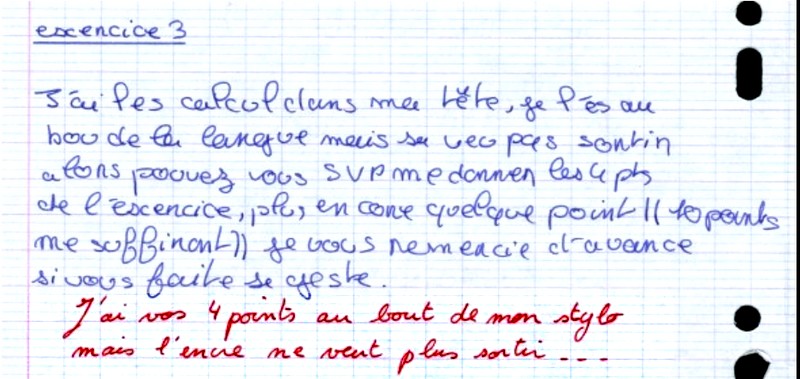 excencice 3
J'ai les calcul dans ma tête, je l'es au
bou de la langue mais sa veu pas sontin
alons pouvez vous SVP me donnen les 4 pts
de l'escencice, plus encone quelque point (( 10 points
me suffinont )) je vous nemencie d'avance
si vous faite se geste.
J'ai vos 4 points au bout de mon stylo
mais l'encre ne veut plus sortir ---